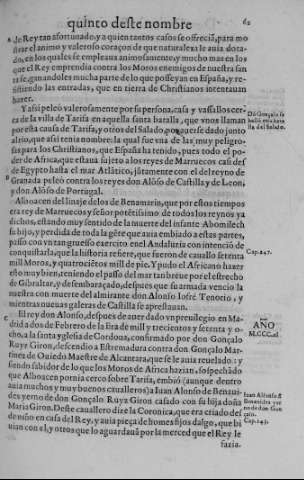 quinto deste nombre
62
A de Rey tan afortunado, y a quien tantos casos se offrecia, para mo
strar el animo y valeroso coraçon de que naturaleza le auia dota-
do, en los quales se empleaua animosamente, y mucho mas en los
que el Rey emprendia contra los Moros enemigos de nuestra san
ta fe, ganandoles mucha parte de lo que posseyan en España, y re-
sistiendo las entradas, que en tierra de Christianos intentauan
hazer.
Y assi peleò valerosamente por su persona, casa y vassallos cer-
ca de la villa de Tarifa en aquella santa batalla, que vnos llaman
por esta causa de Tarifa, y otros del Salado, por auerse dado junto
al rio, que assi tenia nombre: la qual fue vna de las muy peligro-
sas para los Christianos, que España ha tenido, pues todo el po-
der de Africa, que estaua sujeto a los reyes de Marruecos casi des
de Egypto hasta el mar Atlático, jũtamente con el del reyno de
B Granada peleò contra los reyes don Alõso de Castilla y de Leon,
y don Alõso de Portugal.
Alboacen del linaje delos de Benamarin, que por estos tiempos
era rey de Marruecos y señor potẽtissimo de todos los reynos ya
dichos, estando muy sentido de la muerte del infante Abomilech
su hijo, y perdida de toda la gẽte que auia embiado a estas partes,
passò con vn gruesso exercito en el Andaluzia con intenciõ de
conquistarla, que la historia refiere, que fueron de cauallo setenta
mil Moros, y quatrocietos mil de pie. Y pudo el Africano hazer
esto muy bien, teniendo el passo del mar tan breue por el estrecho
de Gibraltar, y desembaraçado, despues que su armada vencio la
nuestra con muerte del almirante don Alonso Iofrẽ Tenorio, y
mientras nueuas galeras de Castilla se aprestauan.
C El rey don Alonso, despues de auer dado vn preuilegio en Ma-
drid a dos de Febrero de la Era de mill y trecientos y setenta y o-
cho, a la santa yglesia de Cordoua, confirmado por don Gonçalo
Ruyz Giron, descendio a Estremadura contra don Gonçalo Mar-
tinez de Ouiedo Maestre de Alcantara, que se le auia reuelado: y
siendo sabidor de lo que los Moros de Africa hazian, sospechado
que Alboacen pornia cerco sobre Tarifa, embiò (aunque dentro
auia muchos y muy buenos caualleros) a Iuan Alonso de Benaui-
des yerno de don Gonçalo Ruyz Giron casado con su hija doña
Maria Giron. Deste cauallero dize la Coronica, que era criado des
de niño en casa del Rey, y auia pieça de homes fijos dalgo, que bi
uian con el, y otros que lo aguardauã por la merced que el Rey le
fazia.
Dõ Gonçalo se
hallò en la bata
lla del Salado.
Cap. 247.
AÑO
M.CCC.xl.
Iuan Alonso đ
Benauides yer
no de don Gon
çalo.
Cap. 243.